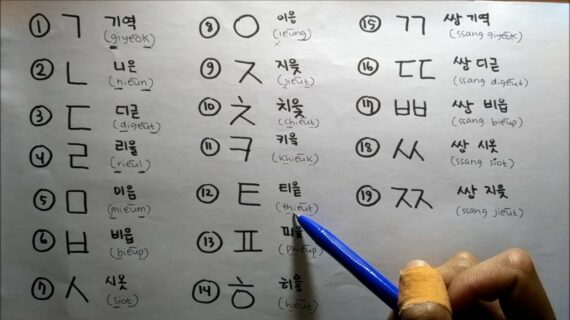 ① ㄱ 기역
(giyeok)
② ㄴ 니은
(nieun)
③ ㄷ 디귿
(digeut)
④ ㄹ 리을
(rieul)
⑤ ㅁ 미음
(mieum)
⑥ ㅂ 비읍
(bieup)
⑦ ㅅ 시옷
(siot)
⑧ ㅇ 이응
(ieung)
⑨ ㅈ 지읒
(jieut)
⑩ ㅊ 치읓
(chieut)
⑪ ㅋ 키읔
(khieuk)
⑫ ㅌ 티읕
(thieut)
⑬ ㅍ 피읖
(phieup)
⑭ ㅎ 히읗
(hieut)
⑮ ㄲ 쌍 기역
(ssang giyeok)
⑯ ㄸ 쌍 디귿
(ssang digeut)
⑰ ㅃ 쌍 비읍
(ssang bieup)
⑱ ㅆ 쌍 시옷
(ssang siot)
⑲ ㅉ 쌍 지읒
(ssang jieut)